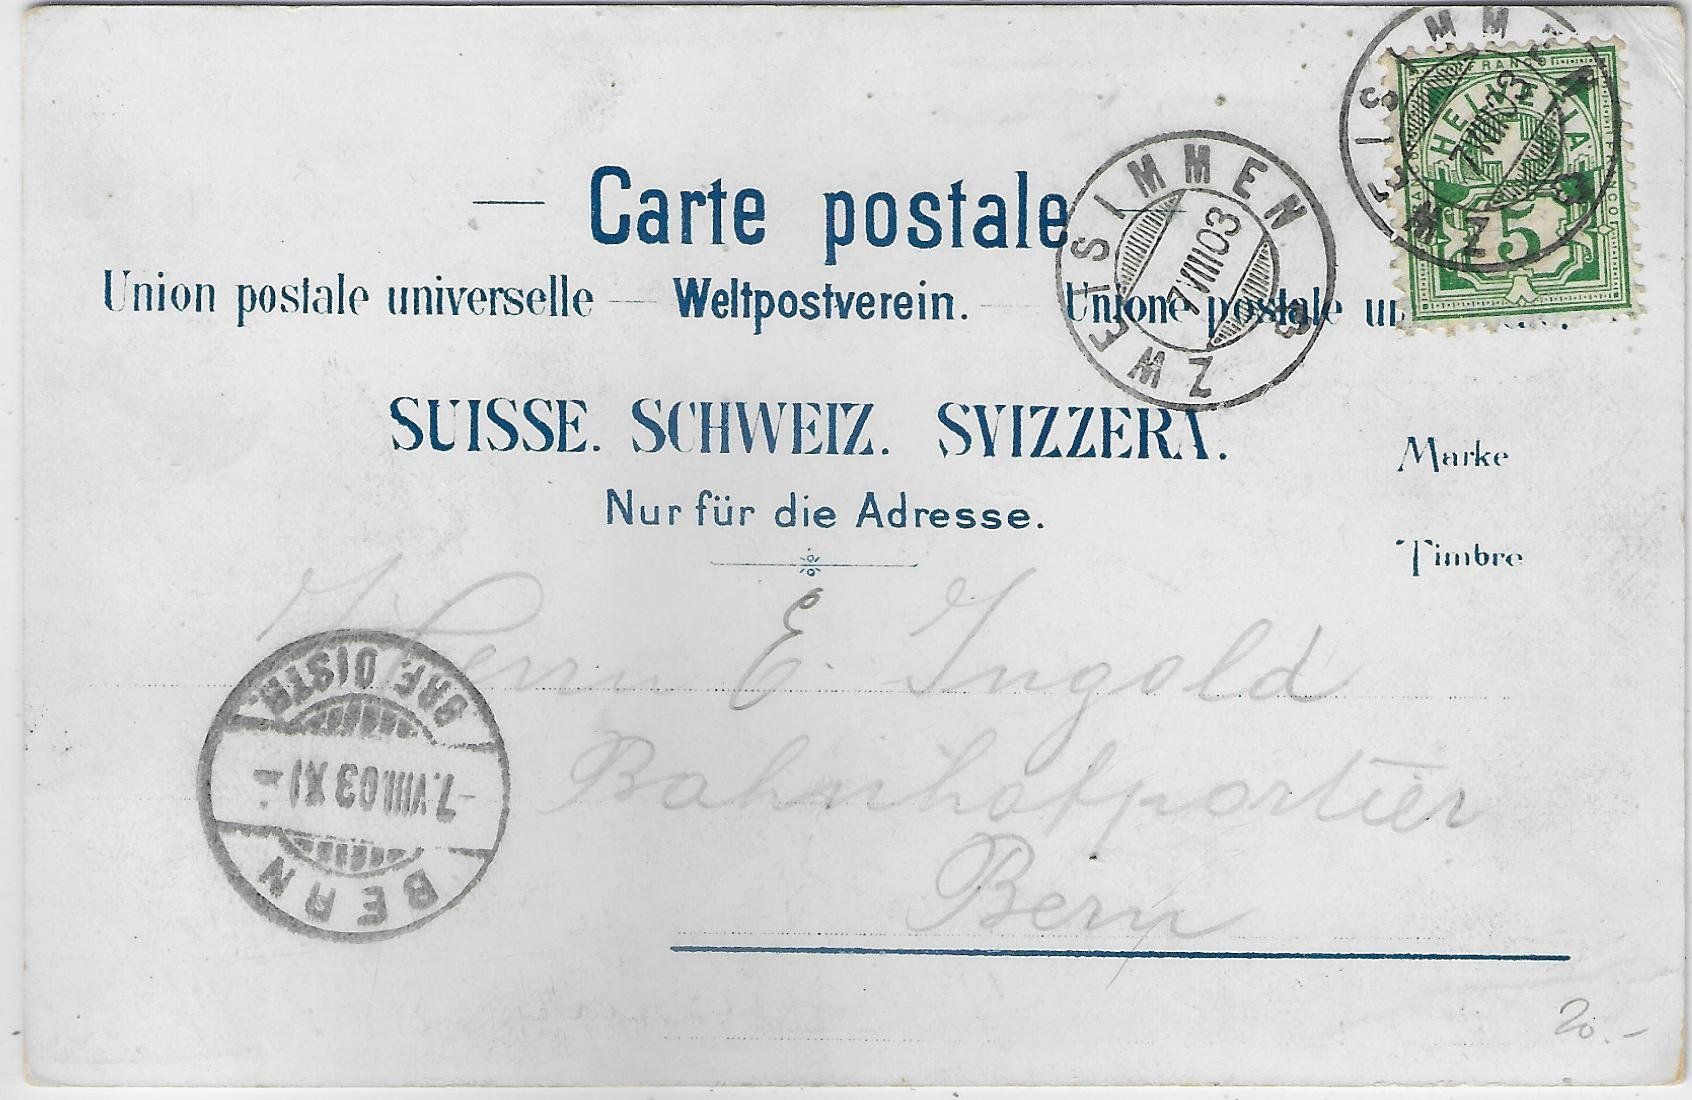 Carte postale
Union postale universelle — Weltpostverein. — Unione postale un
SUISSE. SCHWEIZ. SVIZZERA.
Nur für die Adresse.
Marke
Timbre
FRANCO
HELVETIA
5
ZWEISIMMEN
7 VIII 03
ZWEISIMMEN
7 VIII 03
BRF. DISTR.
-7.VIII.03 XI-
BERN
Herrn E. Ingold
Bahnhofportier
Bern
20.-